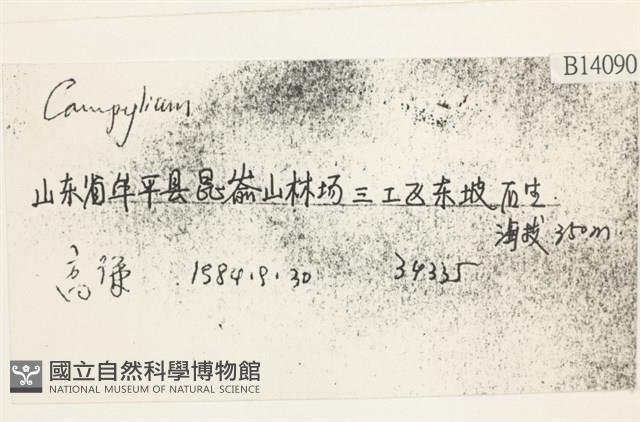 B14090
Campylium
山东省牟平县昆嵛山林场三工区东坡石生
海拔350m
高谦 1984.9.30 34335
國立自然科學博物館
NATIONAL MUSEUM OF NATURAL SCIENCE